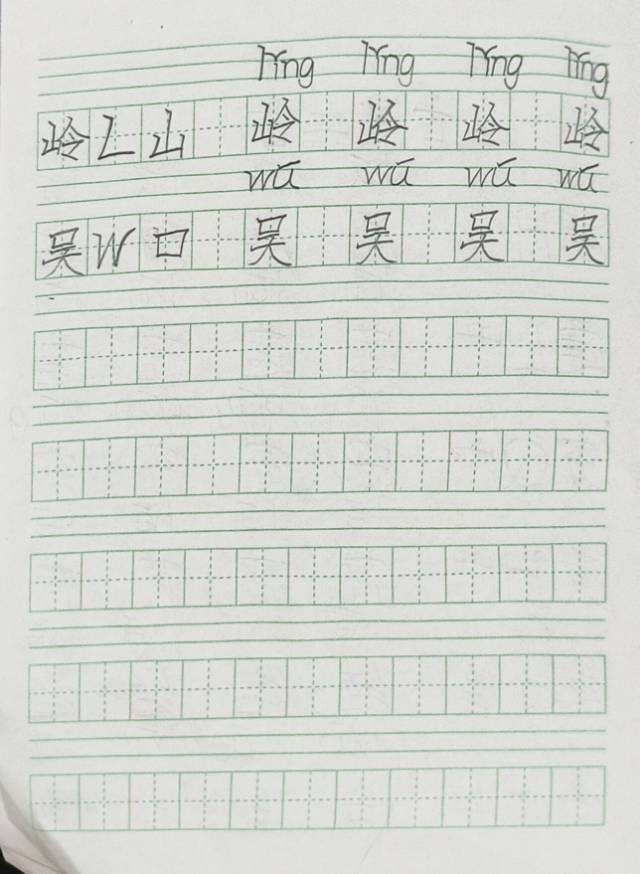 lǐng lǐng lǐng lǐng
岭 L 山 岭 岭 岭 岭
wú wú wú wú
吴 W 口 吴 吴 吴 吴